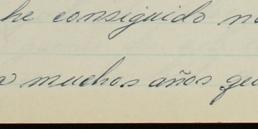 he conseguido
muchos años